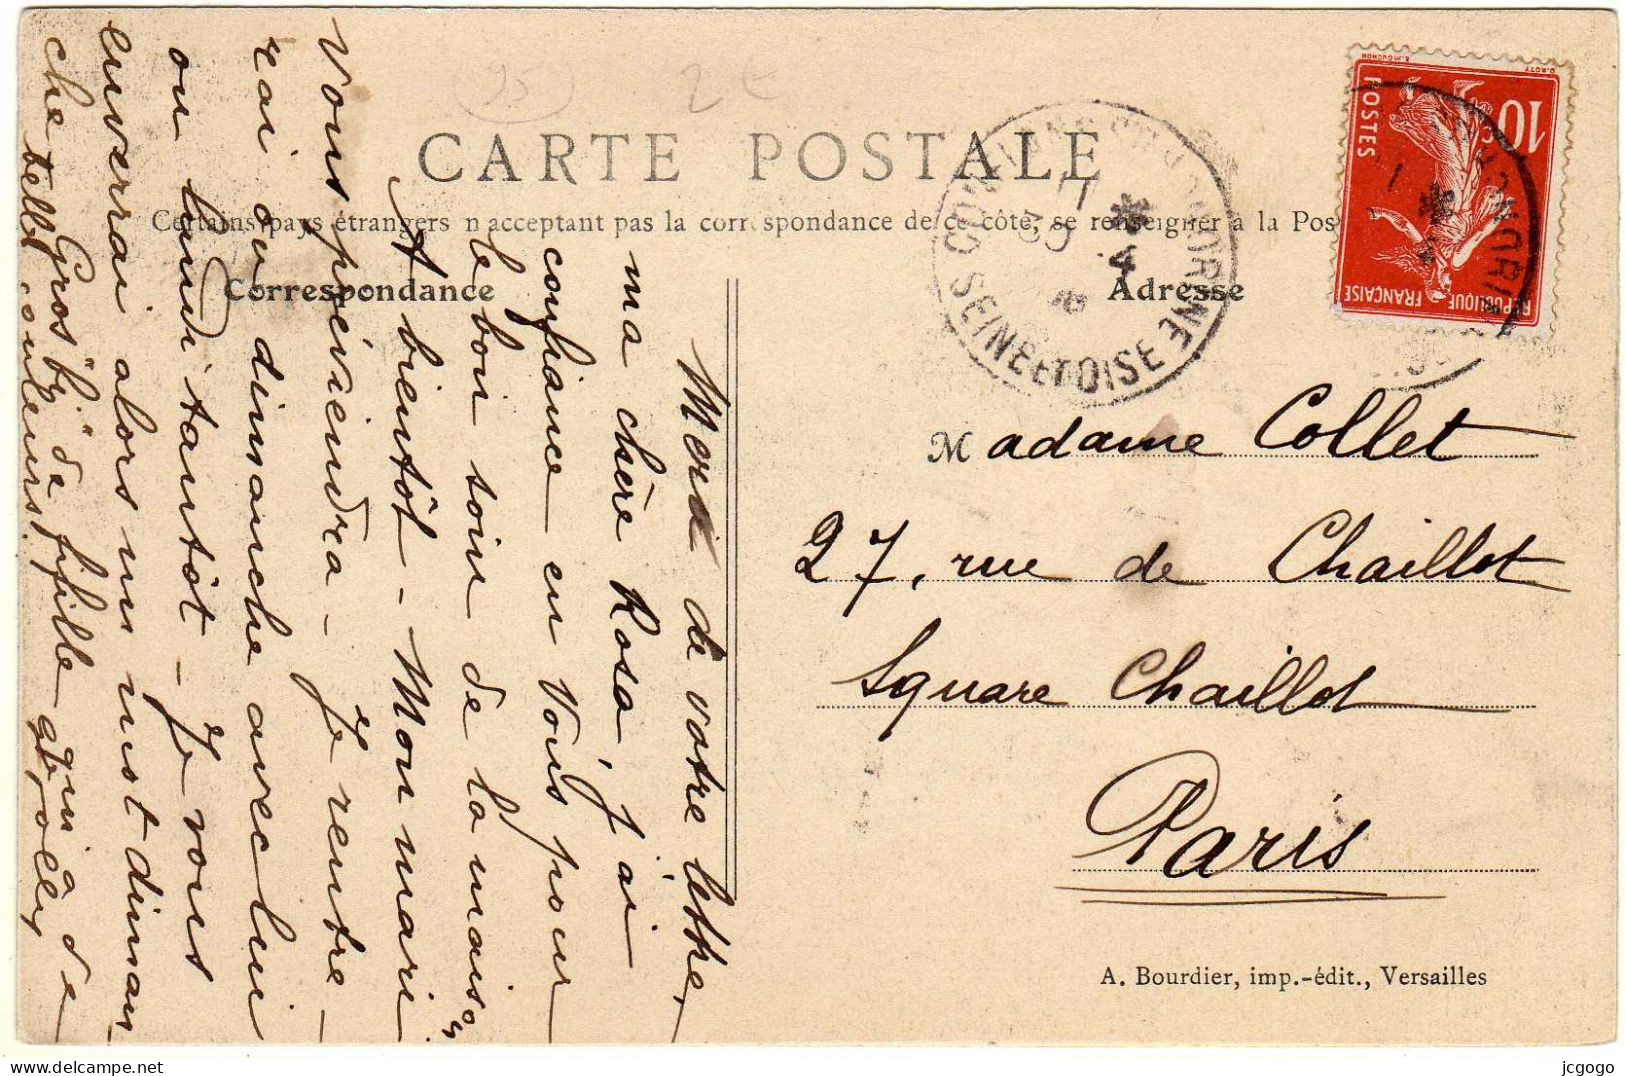 CARTE POSTALE
Certains pays étrangers n'acceptent pas la correspondance de ce côté, se renseigner à la Pos
Correspondance
Adresse
Merci de votre lettre,
ma chère Rosa, j'ai
confiance en vous pour
le bon soin de la maison
A bientôt - Mon mari
vous préviendra - Je rentre-
rai ou dimanche avec lui
ou lundi tantôt - Je vous
enverrai alors un mot diman
che
Gros de fifille qui a de
belles couleurs!
Madame Collet
27, rue de Chaillot
Square Chaillot
Paris
A. Bourdier, imp.-édit., Versailles
10c
POSTES
REPUBLIQUE FRANÇAISE
O. ROTY
E. MOUCHON
SEINE ET OISE
95
2€
jcgogo